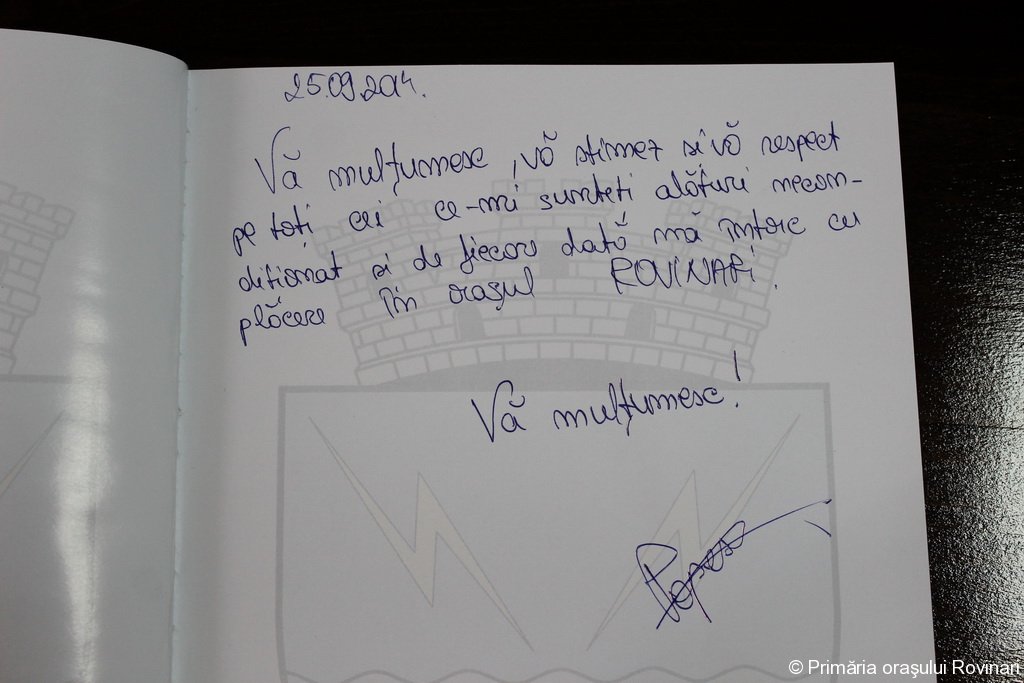 25.09.2014.
Vă mulțumesc, vă stimez și vă respect
pe toți cei ce-mi sunteți alături necon-
diționat și de fiecare dată mă întorc cu
plăcere în orașul ROVINARI.
Vă mulțumesc!
© Primăria oraşului Rovinari